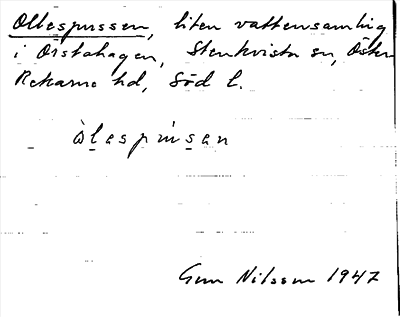 Ollespussen, liten vattensamling
i Örstahagen, Stenkvista sn, Öster
Rekarne hd, Söd l.
Gun Nilsson 1947